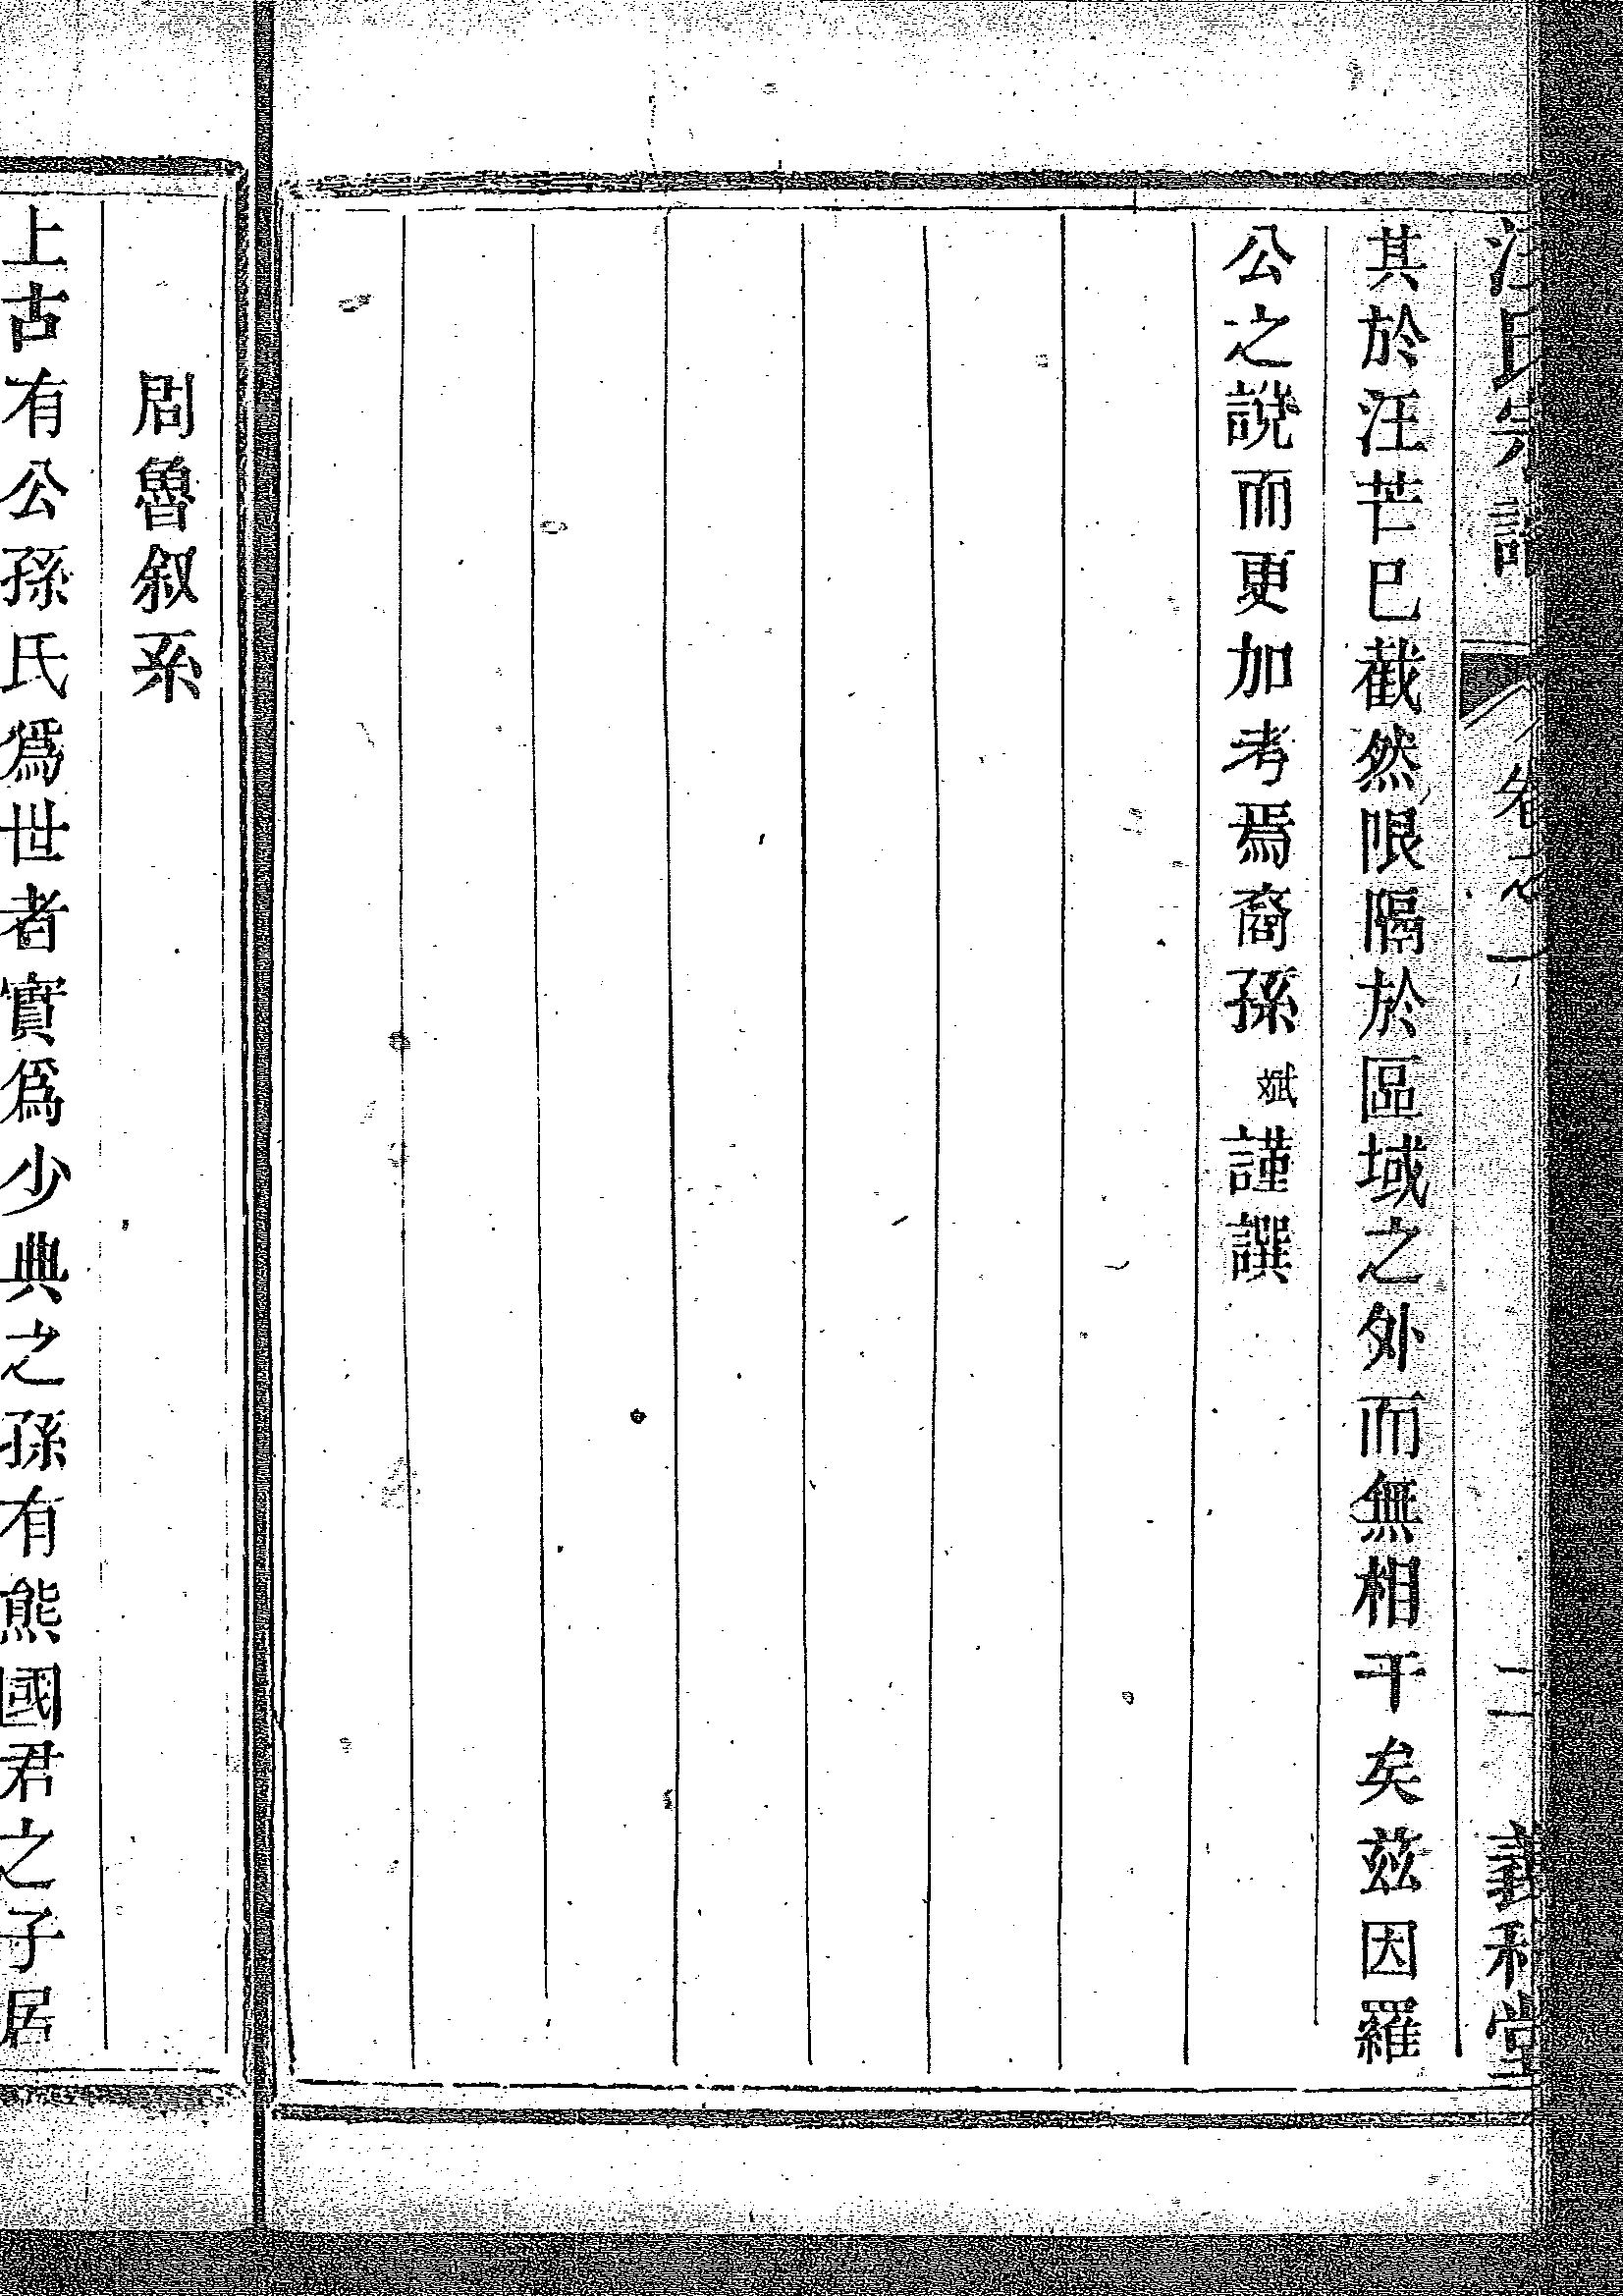 汪氏宗譜 卷之一 二 義和堂
其於汪芒巳截然限隔於區域之外而無相干矣茲因羅
公之說而更加考焉裔孫斌謹譔
周魯叙系
上古有公孫氏爲世者實爲少典之孫有熊國君之子居